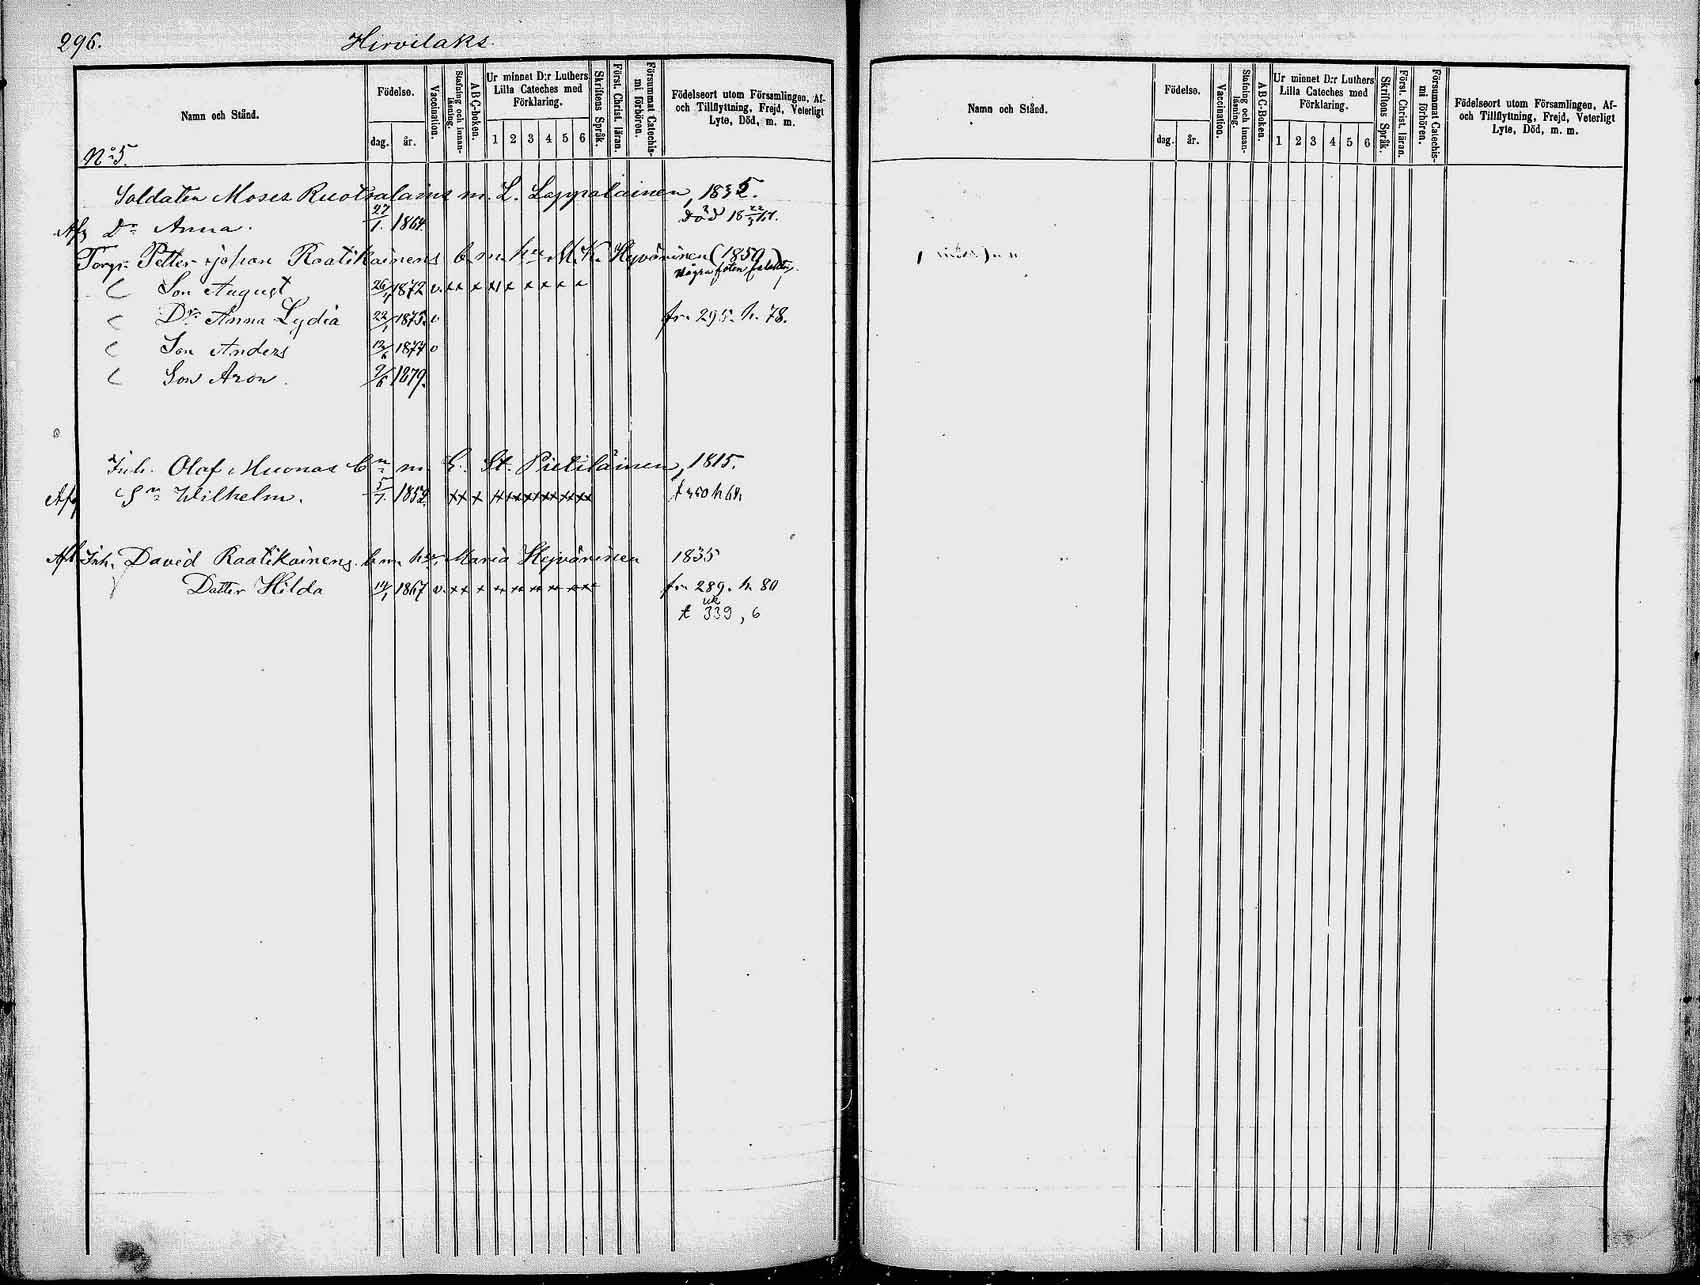 296. Hirvilaks
Namn och Stånd.
Födelse.
dag. år.
Vaccination.
Stafning och innan-läsning.
ABC-boken.
Ur minnet D:r Luthers Lilla Cateches med Förklaring.
1 2 3 4 5 6
Skriftens Språk.
Först. Christ. läran.
Försummat Catechis-mi förhören.
Födelseort utom Församlingen, Af- och Tillflyttning, Frejd, Veterligt Lyte, Död, m. m.
No 5.
Soldaten Moses Ruotsalains m. L. Lappalainen, 1835.
Afg Dr Anna. 27/1. 1864. död 18
Torp. Petter Johan Raatikainens b. m. hu M. K. Hyvärinen (1850)
Son August 26/1 1872 v. xx x x x x x x x
Dr Anna Lydia 22/1 1875. v fr. 295. h. 78.
Son Anders 13/6 1877 v
Son Aron. 9/6 1879.
Inh. Olaf Muonas bn m. E. St. Pietiläinen, 1815.
Afg Sn Wilhelm. 5/7. 1852. xx x xx xx xx xx xx xx
Afl Inh. David Raatikainens b. m. hu, Maria Hyvärinen 1835
Dotter Hilda 14/1 1867 v. xx x xx xx xx xx xx xx fr. 289. h 80
t 339, 6
Namn och Stånd.
Födelse.
dag. år.
Vaccination.
Stafning och innan-läsning.
ABC-Boken.
Ur minnet D:r Luthers Lilla Cateches med Förklaring.
1 2 3 4 5 6
Skriftens Språk.
Först. Christ. läran.
Försummat Catechis-mi förhören.
Födelseort utom Församlingen, Af- och Tillflyttning, Frejd, Veterligt Lyte, Död, m. m.